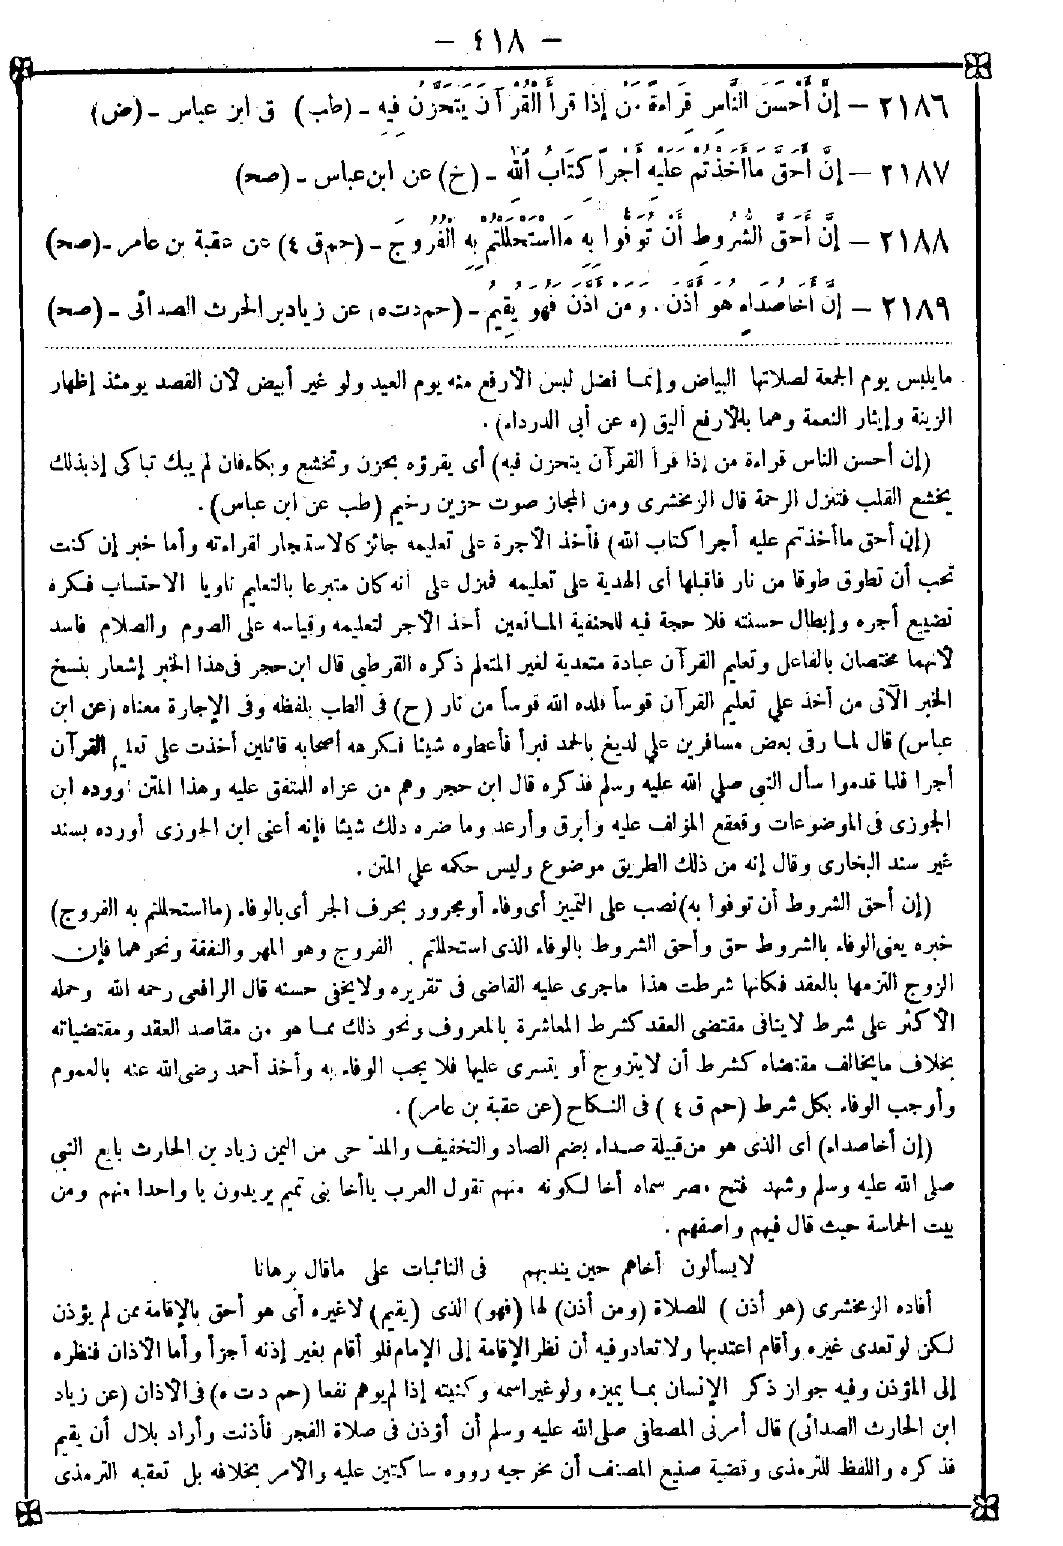 – ٤١٨ –
٢١٨٦ – إِنَّ أَحْسَنَ النَّاسِ قِرَاءَةً مَنْ إِذَا قَرَأَ الْقُرْآنَ يَتَحَزَّنُ فِيهِ – (طب) ق ابن عباس – (ض)
٢١٨٧ – إِنَّ أَحَقَّ مَا أَخَذْتُمْ عَلَيْهِ أَجْرًا كِتَابُ اللهِ – (خ) عن ابن عباس – (صح)
٢١٨٨ – إِنَّ أَحَقَّ الشُّرُوطِ أَنْ تُوفُوا بِهِ مَا اسْتَحْلَلْتُمْ بِهِ الْفُرُوجَ – (حم ق ٤) عن عقبة بن عامر – (صح)
٢١٨٩ – إِنَّ أَخَا صُدَاءٍ هُوَ أَذَّنَ. وَمَنْ أَذَّنَ فَهُوَ يُقِيمُ – (حم د ت ه) عن زياد بن الحرث الصدائى – (صح)
ما يلبس يوم الجمعة لصلاتها البياض وإنما فضل لبس الأرفع منه يوم العيد ولو غير أبيض لأن القصد يومئذ إظهار
الزينة وإيثار النعمة وهما بالأرفع أليق (ه عن أبى الدرداء) .
(إن أحسن الناس قراءة من إذا قرأ القرآن يتحزن فيه) أى يقرؤه بحزن وتخشع وبكاء فان لم يبك تباكى إذ بذلك
يخشع القلب فتنزل الرحمة قال الزمخشرى ومن المجاز صوت حزين رخيم (طب عن ابن عباس) .
(إن أحق ما أخذتم عليه أجرا كتاب الله) فأخذ الأجرة على تعليمه جائز كالاستئجار لقراءته وأما خبر إن كنت
تحب أن تطوق طوقا من نار فاقبلها أى الهدية على تعليمه فمنزل على أنه كان متبرعا بالتعليم ناويا الاحتساب فكره
تضييع أجره وإبطال حسنته فلا حجة فيه للحنفية المانعين أخذ الأجر لتعليمه وقياسه على الصوم والصلام فاسد
لأنهما مختصان بالفاعل وتعليم القرآن عبادة متعدية لغير المتعلم ذكره القرطبى قال ابن حجر فى هذا الخبر إشعار بنسخ
الخبر الآتى من أخذ على تعليم القرآن قوساً قلده الله قوساً من نار (خ) فى الطب بلفظه وفى الإجارة معناه (عن ابن
عباس) قال لما رقى بعض مسافرين على لديغ بالحمد فبرأ فأعطوه شيئا فكرهه أصحابه قائلين أخذت على تعليم القرآن
أجرا فلما قدموا سأل النبى صلى الله عليه وسلم فذكره قال ابن حجر وهم من عزاه للمتفق عليه وهذا المتن أورده ابن
الجوزى فى الموضوعات وقعقع المؤلف عليه وأبرق وأرعد وما ضره ذلك شيئا فإنه أعنى ابن الجوزى أورده بسند
غير سند البخارى وقال إنه من ذلك الطريق موضوع وليس حكمه على المتن .
(إن أحق الشروط أن توفوا به) نصب على التمييز أى وفاء أو مجرور بحرف الجر أى بالوفاء (ما استحللتم به الفروج)
خبره يعنى الوفاء بالشروط حق وأحق الشروط بالوفاء الذى استحللتم الفروج وهو المهر والنفقة ونحوهما فإن
الزوج التزمها بالعقد فكأنها شرطت هذا ما جرى عليه القاضى فى تقريره ولا يخفى حسنه قال الرافعى رحمه الله وحمله
الأكثر على شرط لا ينافى مقتضى العقد كشرط المعاشرة بالمعروف ونحو ذلك مما هو من مقاصد العقد ومقتضياته
بخلاف ما يخالف مقتضاه كشرط أن لا يتزوج أو يتسرى عليها فلا يجب الوفاء به وأخذ أحمد رضى الله عنه بالعموم
وأوجب الوفاء بكل شرط (حم ق ٤) فى النكاح (عن عقبة بن عامر) .
(إن أخا صداء) أى الذى هو من قبيلة صداء بضم الصاد والتخفيف والمد حى من اليمن زياد بن الحارث بايع النبى
صلى الله عليه وسلم وشهد فتح مصر سماه أخا لكونه منهم تقول العرب يا أخا بنى تميم يريدون يا واحدا منهم ومن
بيت الحماسة حيث قال فيهم واصفهم .
لا يسألون أخاهم حين يندبهم فى النائبات على ما قال برهانا
أفاده الزمخشرى (هو أذن) للصلاة (ومن أذن) لها (فهو) الذى (يقيم) لا غيره أى هو أحق بالإقامة ممن لم يؤذن
لكن لو تعدى غيره وأقام اعتد بها ولا تعاد وفيه أن نظر الإقامة إلى الإمام فلو أقام بغير إذنه أجزأ وأما الأذان فنظره
إلى المؤذن وفيه جواز ذكر الإنسان بما يميزه ولو غير اسمه وكنيته إذا لم يوهم نقصا (حم د ت ه) فى الأذان (عن زياد
ابن الحارث الصدائى) قال أمرنى المصطفى صلى الله عليه وسلم أن أؤذن فى صلاة الفجر فأذنت وأراد بلال أن يقيم
فذكره واللفظ للترمذى وقضية صنيع المصنف أن مخرجيه رووه ساكتين عليه والأمر بخلافه بل تعقبه الترمذى